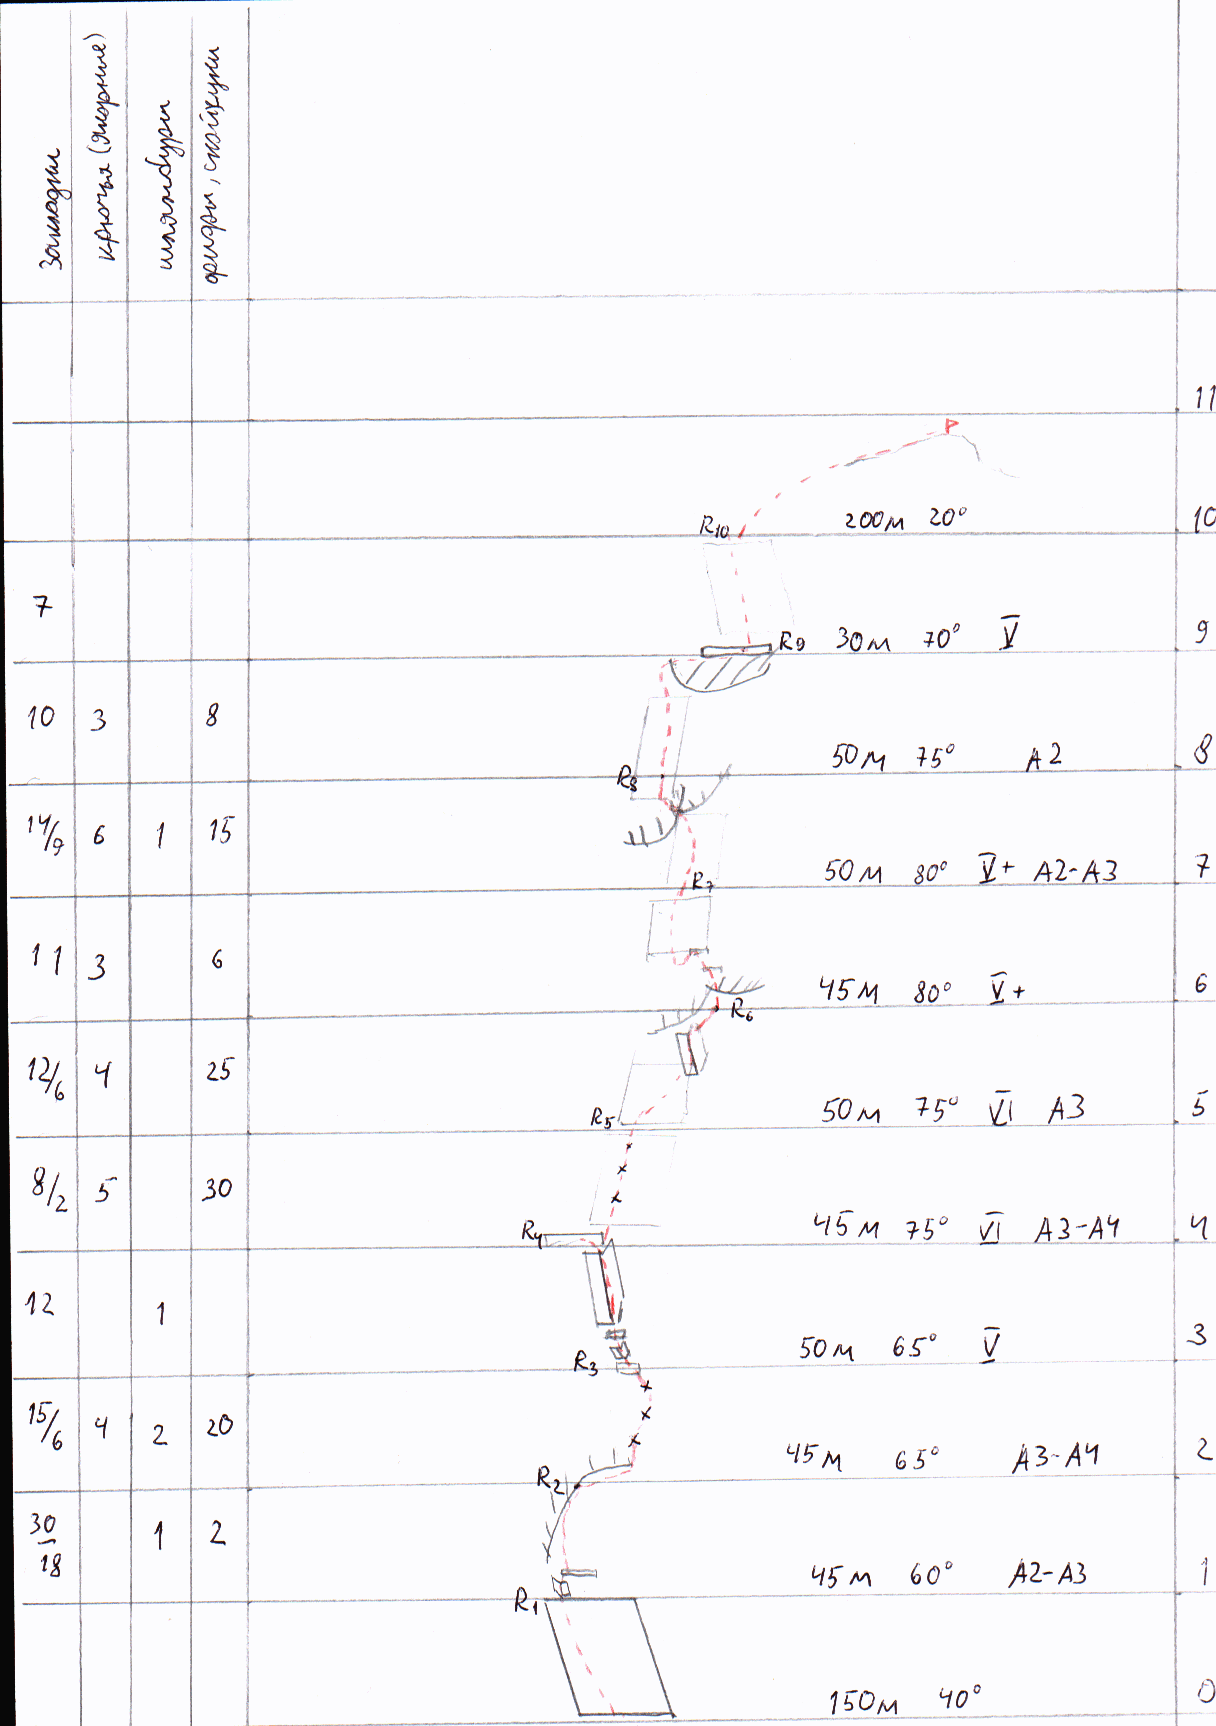 закладки
крючья (якорные)
шлямбуры
френды, скайхуки
11
R10 200м 20° 10
7 R9 30м 70° V 9
10 3 8 50м 75° A2 8
R8
14/9 6 1 15 50м 80° V+ A2-A3 7
R7
11 3 6 45м 80° V+ 6
R6
12/6 4 25 50м 75° VI A3 5
R5
8/2 5 30 45м 75° VI A3-A4 4
R4
12 1 50м 65° V 3
R3
15/6 4 2 20 45м 65° A3-A4 2
R2
30/18 1 2 45м 60° A2-A3 1
R1
150м 40° 0